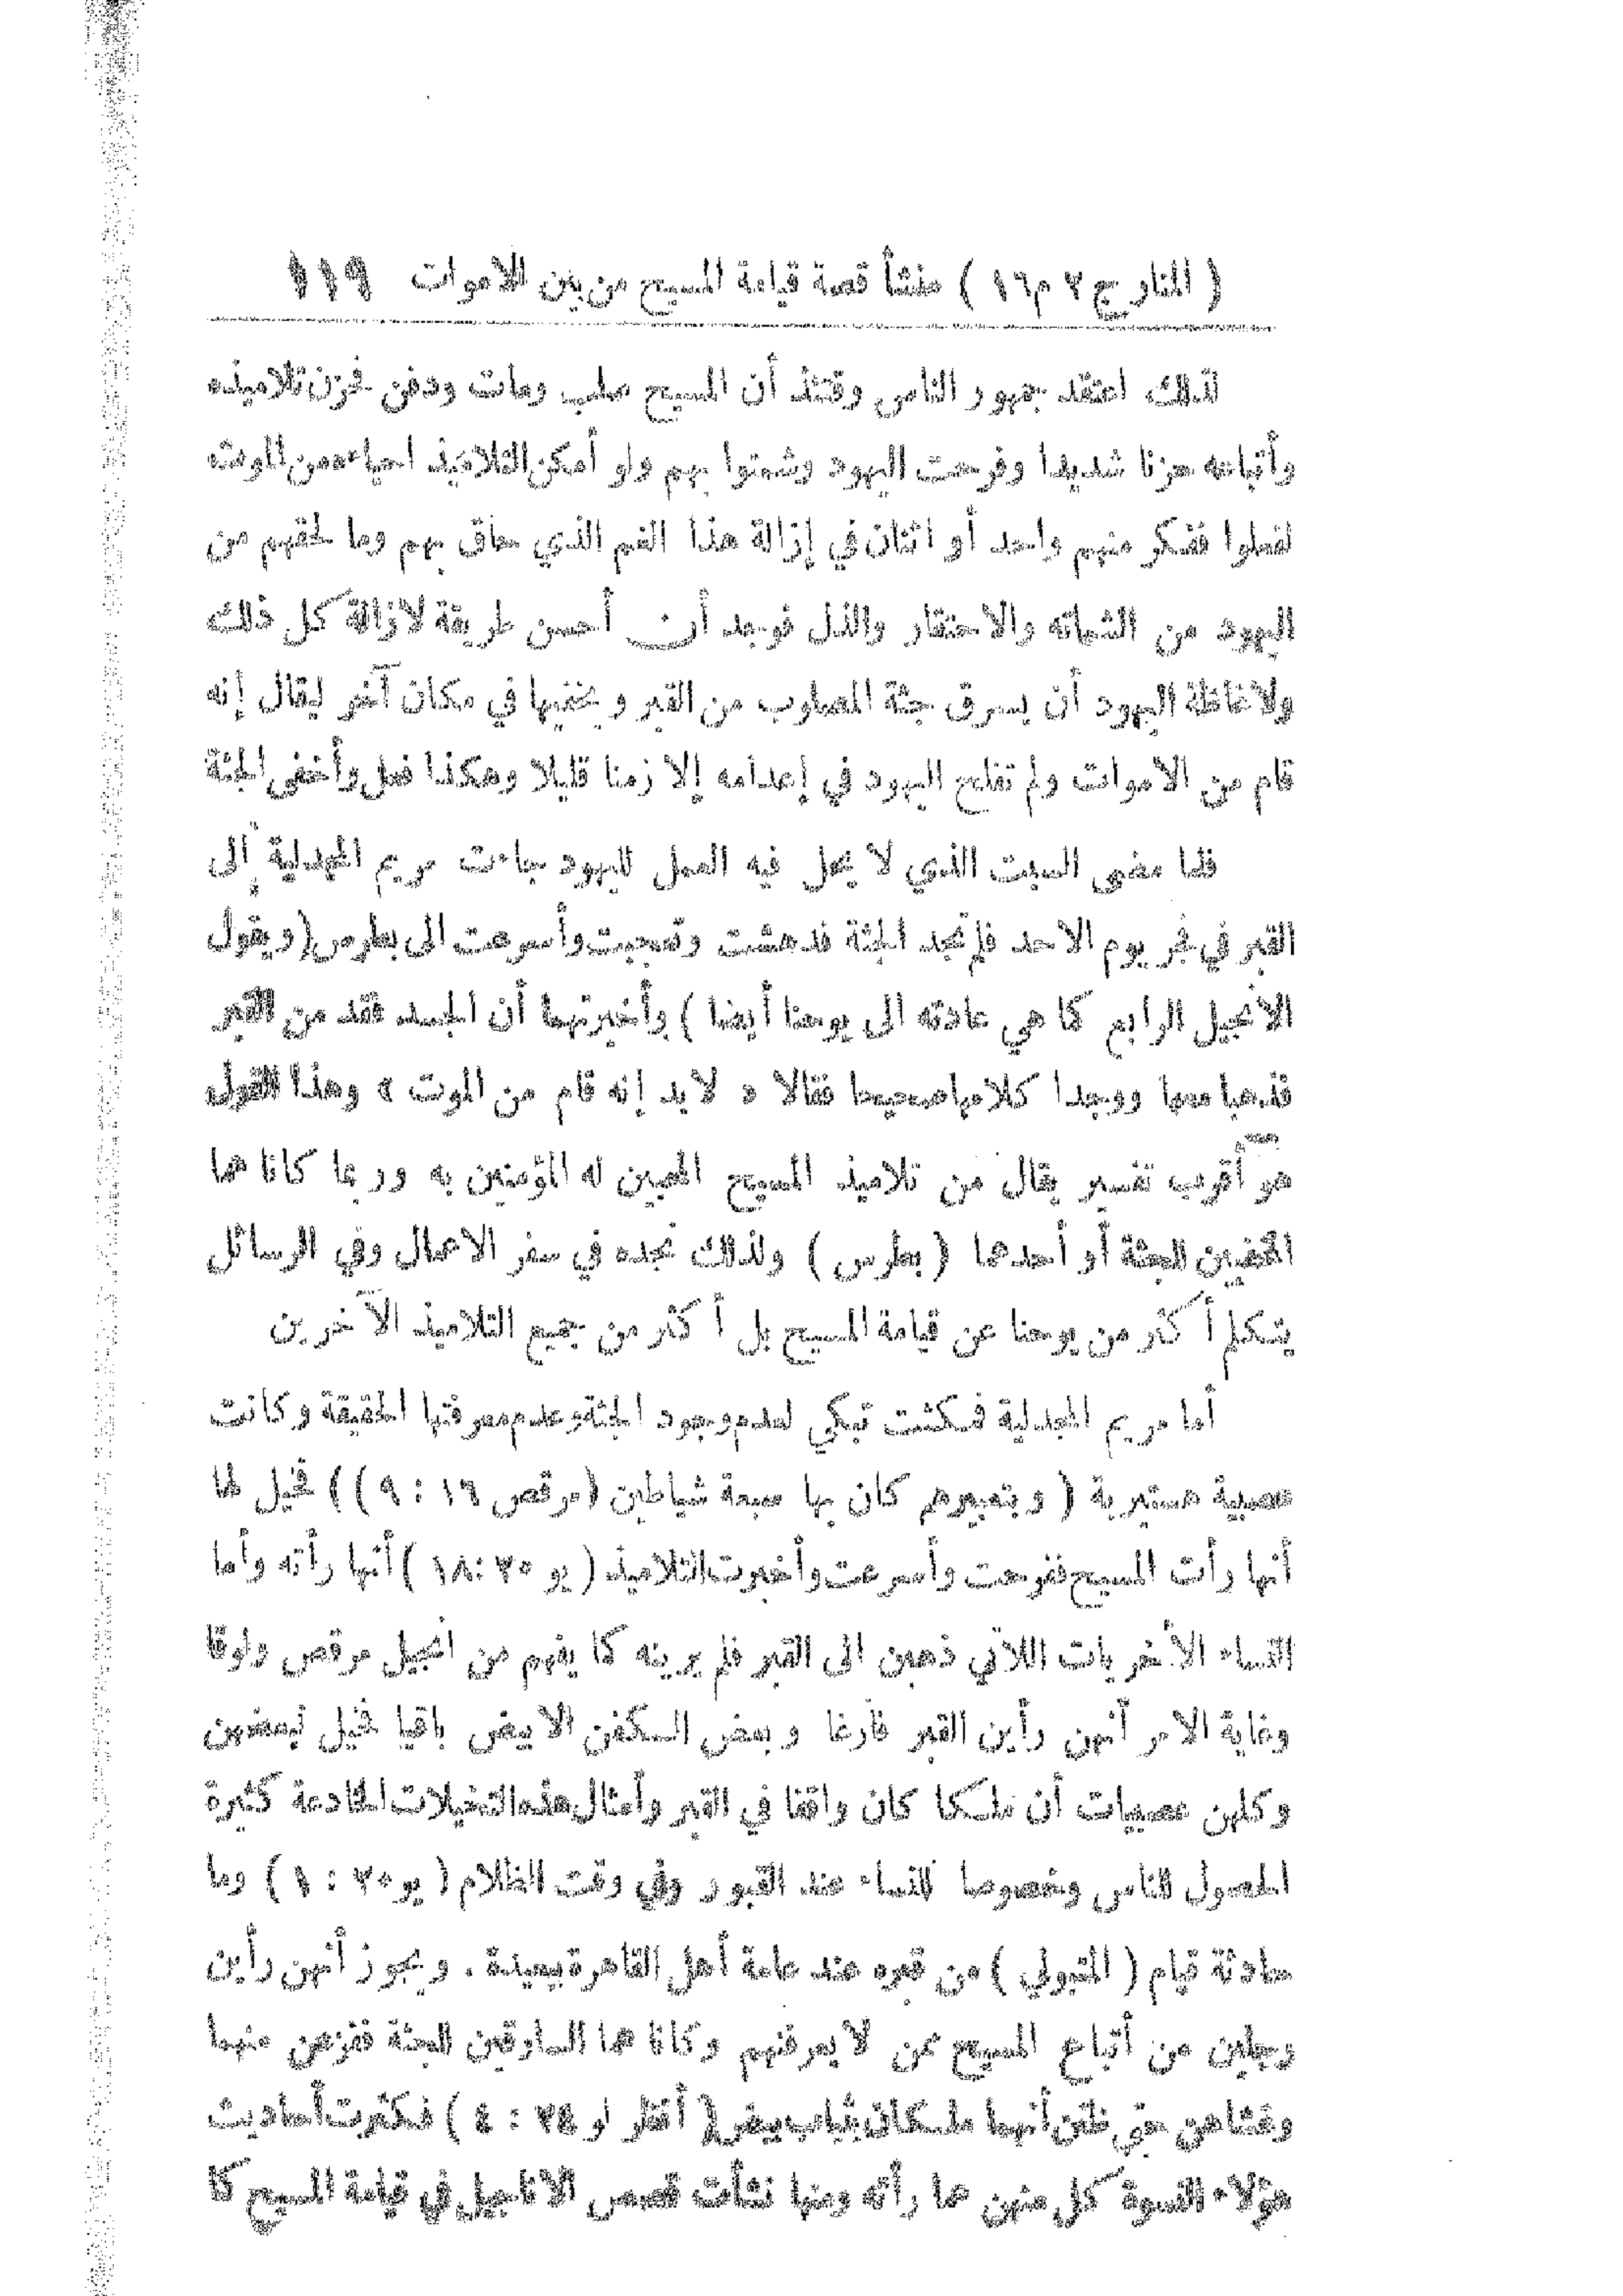 ( المنار ج ٢ م ١٦ ) منشأ قصة قيامة المسيح من بين الاموات ١١٩
لذلك اعتقد جمهور الناس وقتئذ أن المسيح صلب ومات ودفن فحزن تلاميذه
وأتباعه حزنا شديدا وفرحت اليهود وشمتوا بهم ولو أمكن التلاميذ احياءه من الموت
لفعلوا ففكر منهم واحد أو اثنان في إزالة هذا الغم الذي حاق بهم وما لحقهم من
اليهود من الشماته والاحتقار والذل فوجد أن أحسن طريقة لازالة كل ذلك
ولاغاظة اليهود أن يسرق جثة المصلوب من القبر ويخفيها في مكان آخر ليقال إنه
قام من الاموات ولم تفلح اليهود في إعدامه إلا زمنا قليلا وهكذا فعل وأخفى الجثة
فلما مضى السبت الذي لا يحل فيه العمل لليهود جاءت مريم المجدلية إلى
القبر في فجر يوم الاحد فلم تجد الجثة فدهشت وتعجبت وأسرعت الى بطرس (ويقول
الانجيل الرابع كما هي عادته الى يوحنا أيضا ) وأخبرتهما أن الجسد فقد من القبر
فذهبا معها ووجدا كلامها صحيحا فقالا « لا بد إنه قام من الموت » وهذا القول
هو أقرب تفسير يقال من تلاميذ المسيح المحبين له المؤمنين به وربما كانا هما
المخفيين للجثة أو أحدهما ( بطرس ) ولذلك نجده في سفر الاعمال وفي الرسائل
يتكلم أكثر من يوحنا عن قيامة المسيح بل أكثر من جميع التلاميذ الآخرين
أما مريم المجدلية فمكثت تبكي لعدم وجود الجثة وعدم معرفتها الحقيقة وكانت
عصبية هستيرية ( وبتعبيرهم كان بها سبعة شياطين (مرقص ١٦ : ٩ ) ) فخيل لها
أنها رأت المسيح ففرحت وأسرعت وأخبرت التلاميذ ( يو ٢٠ : ١٨ ) أنها رأته وأما
النساء الأخريات اللاتي ذهبن الى القبر فلم يرينه كما يفهم من انجيل مرقص ولوقا
وغاية الامر أنهن رأين القبر فارغا وبعض الكفن الابيض باقيا فخيل لبعضهن
وكلهن عصبيات أن ملكا كان واقفا في القبر وأمثال هذه التخيلات الخادعة كثيرة
الحصول للناس وخصوصا للنساء عند القبور وفي وقت الظلام ( يو ٢٠ : ١ ) وما
حادثة قيام ( المتبولي ) من قبره عند عامة أهل القاهرة ببعيدة . ويجوز أنهن رأين
رجلين من أتباع المسيح ممن لا يعرفنهم وكانا هما السارقين للجثة ففزعن منهما
وغشاهن حتى ظنن أنهما ملكان بثياب بيض ( أنظر لو ٢٤ : ٤ ) فكثرت أحاديث
هؤلاء النسوة كل منهن عما رأته ومنها نشأت قصص الاناجيل في قيامة المسيح كما